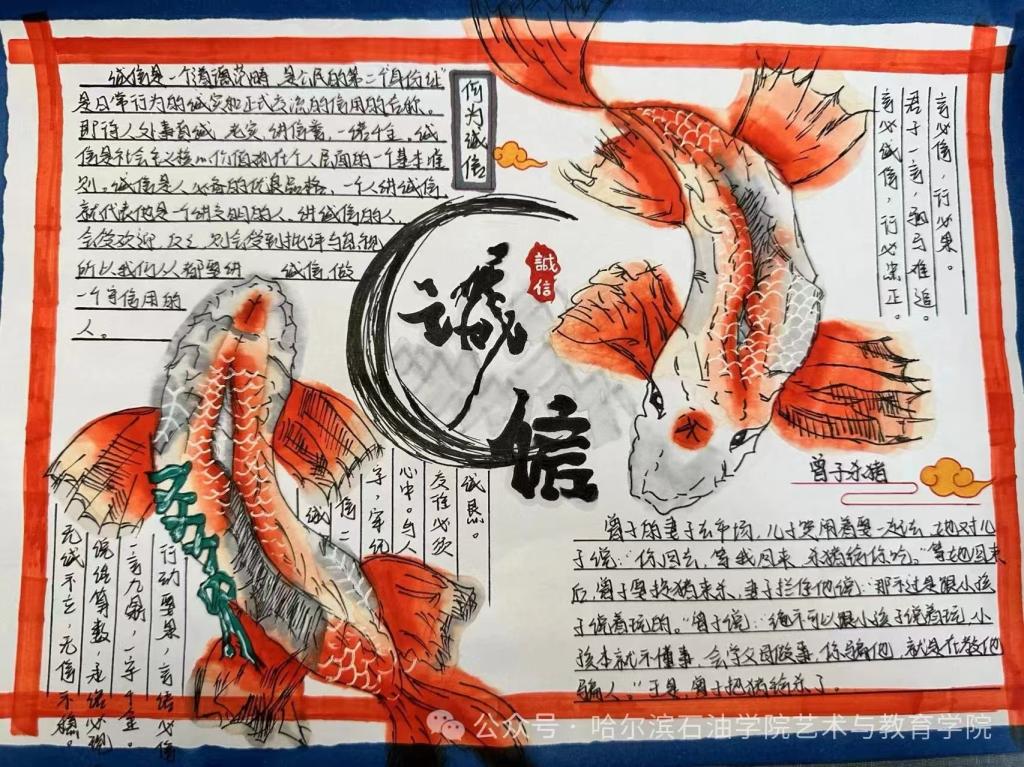 诚信是一个道德范畴,是公民的第二个"身份证"
是日常行为的诚实和正式交流的信用的合称。
即待人处事真诚、老实、讲信誉,一诺千金。诚
信是社会主义核心价值观在个人层面的一个基本准
则。诚信是人必备的优良品格,一个人讲诚信,
就代表他是一个讲文明的人。讲诚信的人,
会受欢迎,反之,则会受到批评与忽视
所以我们人人都要讲 诚信,做
一个守信用的
人。
何为诚信
诚信
誠信
言必信,行必果。
君子一言,驷马难追。
言必诚信,行必忠正。
曾子杀猪
曾子的妻子去市场,儿子哭闹着要一起去,她对儿
子说:"你回去,等我回来 杀猪给你吃。"等她回来
后,曾子要捉猪来杀,妻子拦住他说:"那不过是跟小孩
子说着玩的。"曾子说:"绝不可以跟小孩子说着玩,小
孩本就不懂事,会学父母做事,你骗他,就是在教他
骗人。"于是,曾子把猪给杀了。
诚恳。
交往必须
心中。与人
字,牢记
信二
诚
行动要果,言语必信
一言九鼎,一字千金。
说话算数,承诺必现
无诚不立,无信不
公众号·哈尔滨石油学院艺术与教育学院